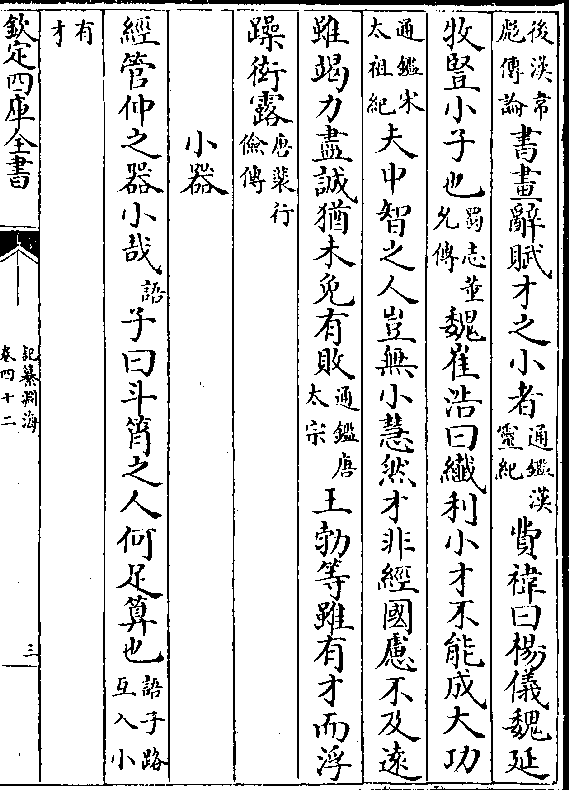 後漢韋彪傳論書畫辭賦才之小者通鑑漢靈紀費禕曰楊儀魏延
牧豎小子也蜀志董允傳魏崔浩曰纎利小才不能成大功
通鑑宋太祖紀夫中智之人豈無小慧然才非經國慮不及遠
雖竭力盡誠猶未免有敗通鑑唐太宗王勃等雖有才而浮
躁衒露唐裴行儉傳
小器
經管仲之器小哉語子曰斗筲之人何足算也語子路互入小
有才
欽定四庫全書
記纂淵海
卷四十二
三